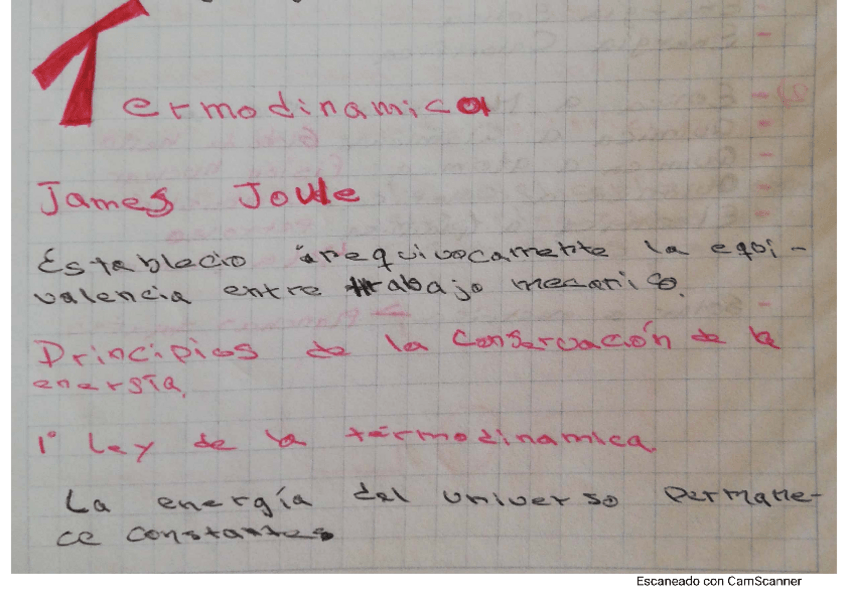 Termodinamica
James Joule
Establecio inequivocamente la equi-
valencia entre trabajo mecanico.
Principios de la conservación de la
energía.
1° Ley de la termodinamica.
La energía del universo permane-
ce constantes
Escaneado con CamScanner